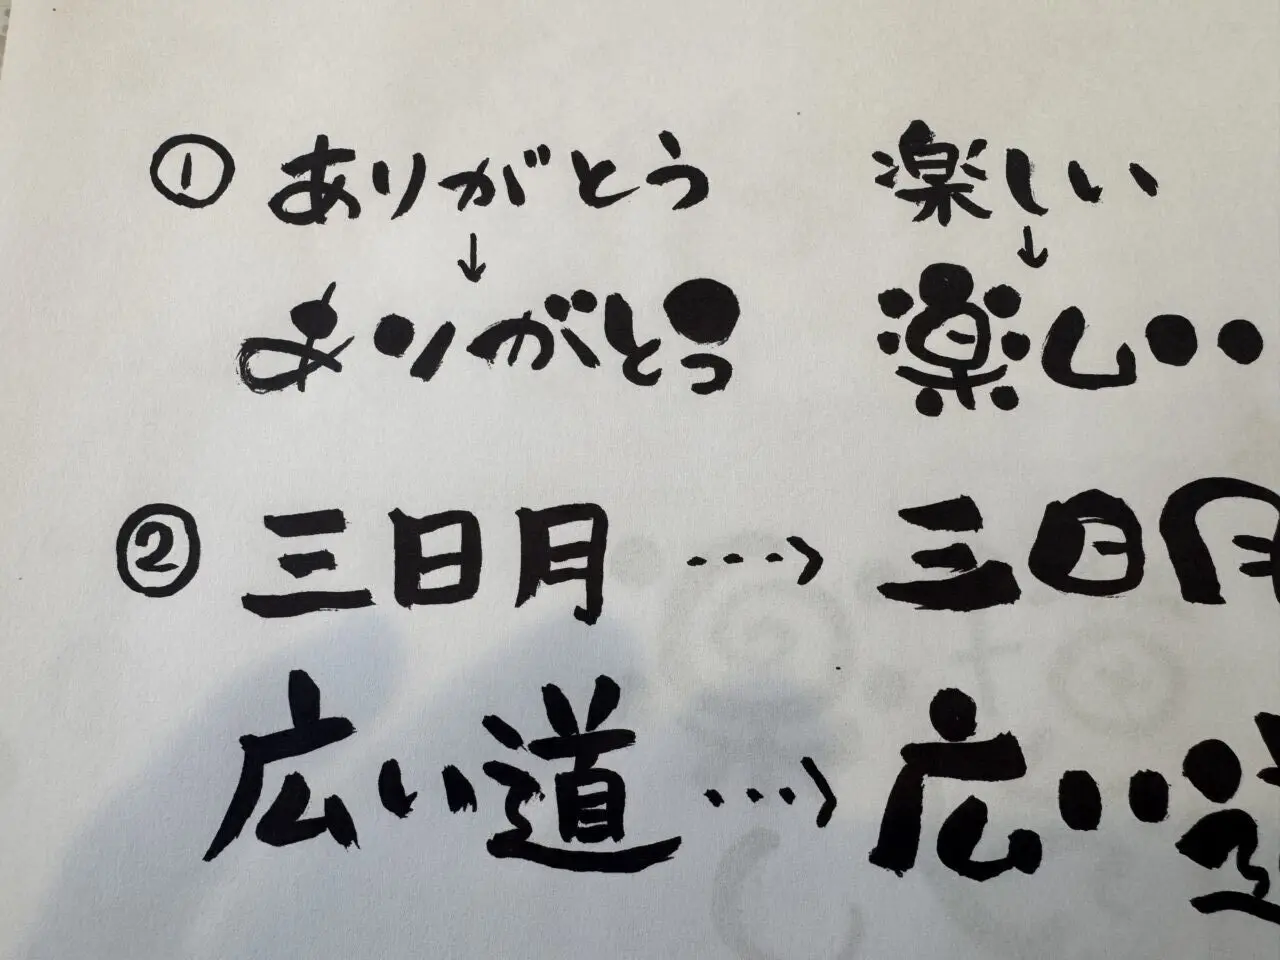 ① ありがとう 楽しい
↓ ↓
ありがとう 楽しい
② 三日月 …> 三日月
広い道 …> 広い道